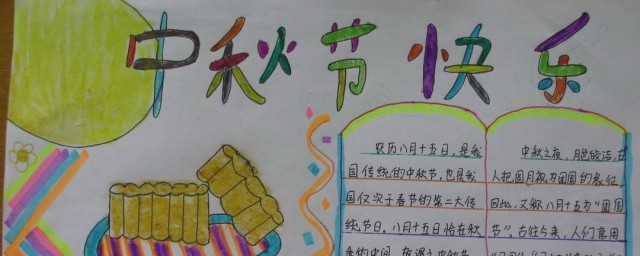 中秋节快乐
农历八月十五日，是我
国传统的中秋节，也是我
国仅次于春节的第二大传
统节日。八月十五日恰在秋
季的中间，故谓之中秋节
中秋之夜，月色皎洁，古
人把圆月视为团圆的象征，
因此，又称八月十五为“团圆
节”。古往今来，人们常用